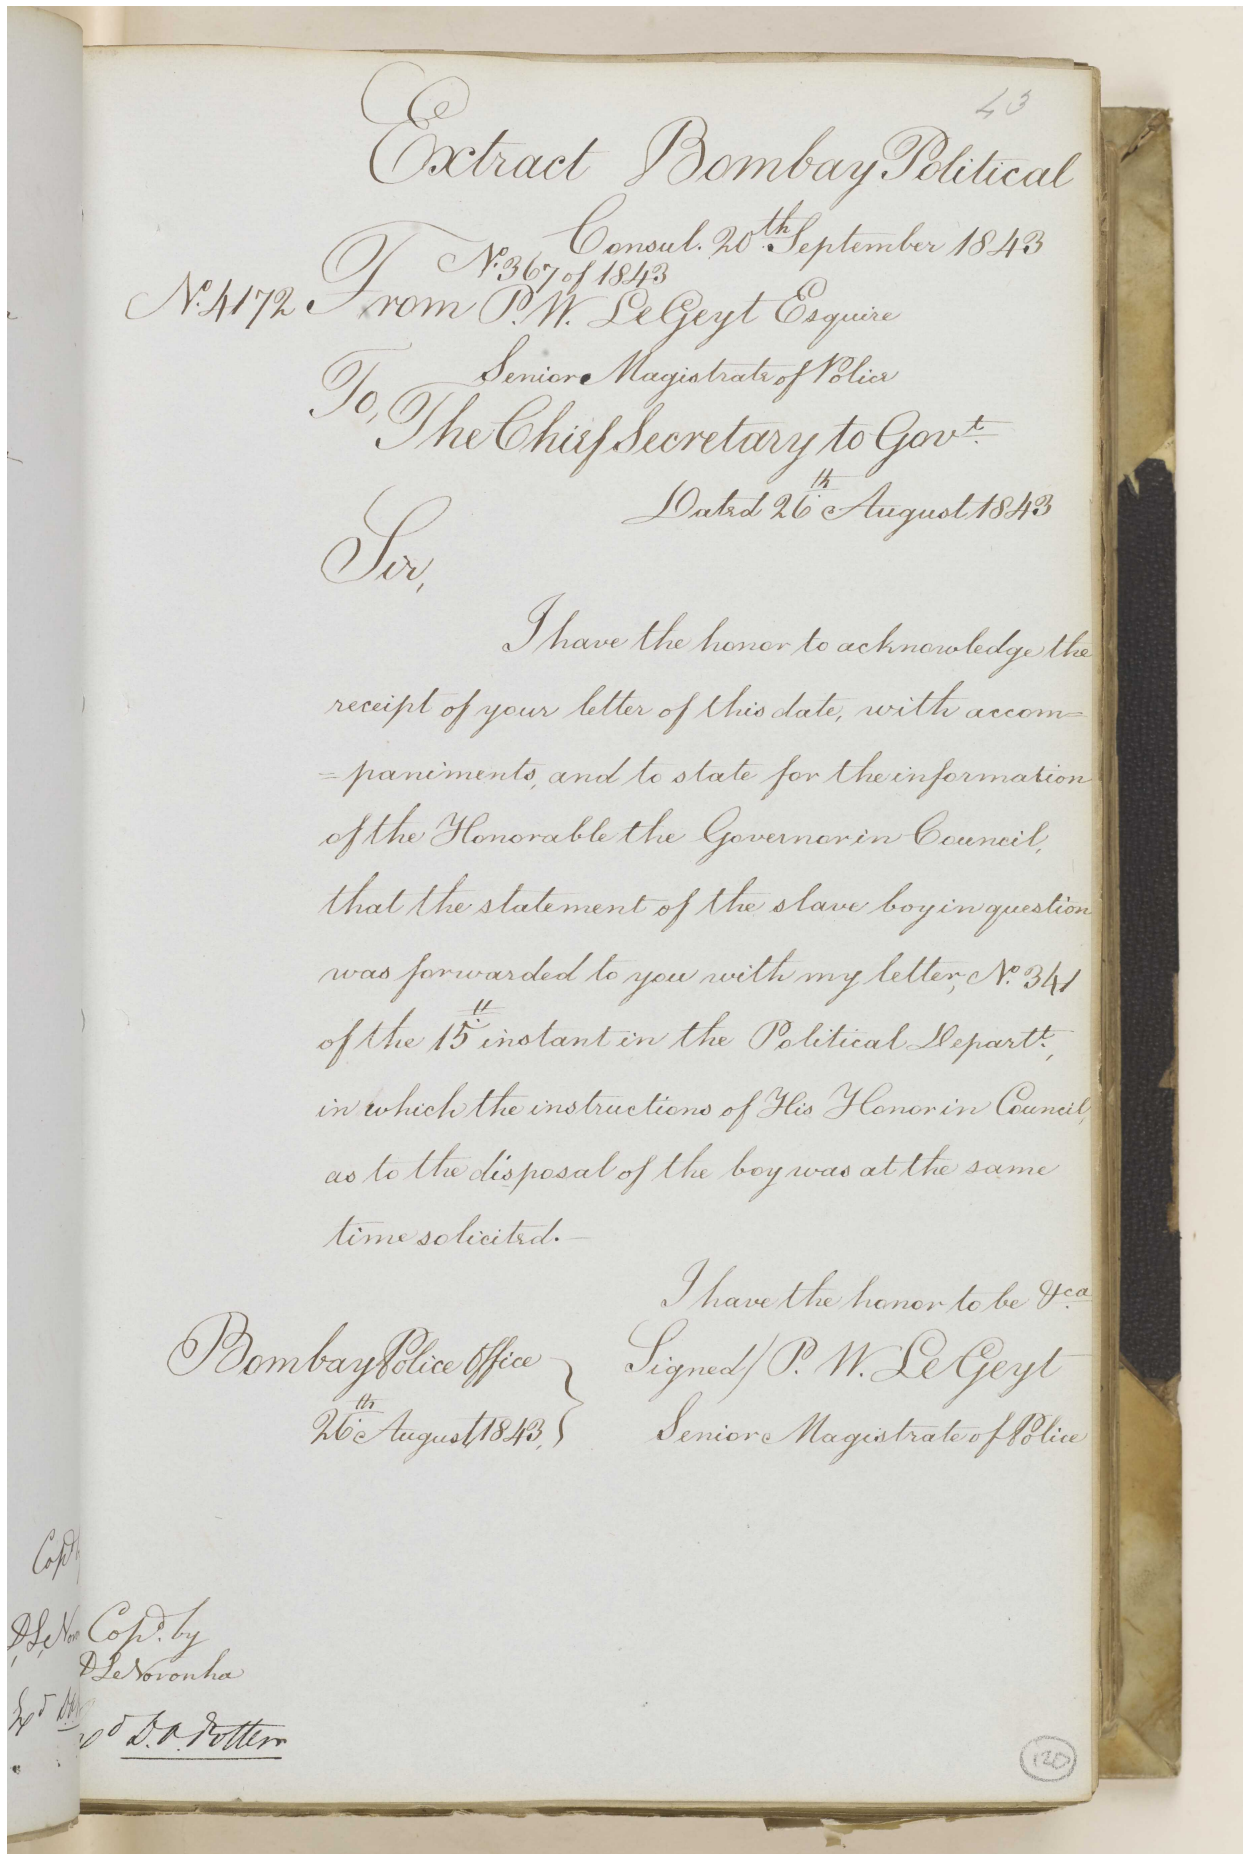 43
Extract Bombay Political
Consul. 20th September 1843
No. 367 of 1843
No. 4172 From P. W. LeGeyt Esquire
Senior Magistrate of Police
To,
The Chief Secretary to Govt.
Dated 26th August 1843
Sir,
I have the honor to acknowledge the
receipt of your letter of this date, with accom=
=paniments, and to state for the information
of the Honorable the Governor in Council,
that the statement of the slave boy in question
was forwarded to you with my letter, No. 341
of the 15th instant in the Political Departt.,
in which the instructions of His Honor in Council,
as to the disposal of the boy was at the same
time solicited.—
I have the honor to be &ca
Bombay Police Office } Signed/ P. W. LeGeyt
26th August 1843, Senior Magistrate of Police
Copd. by
Noronha
120